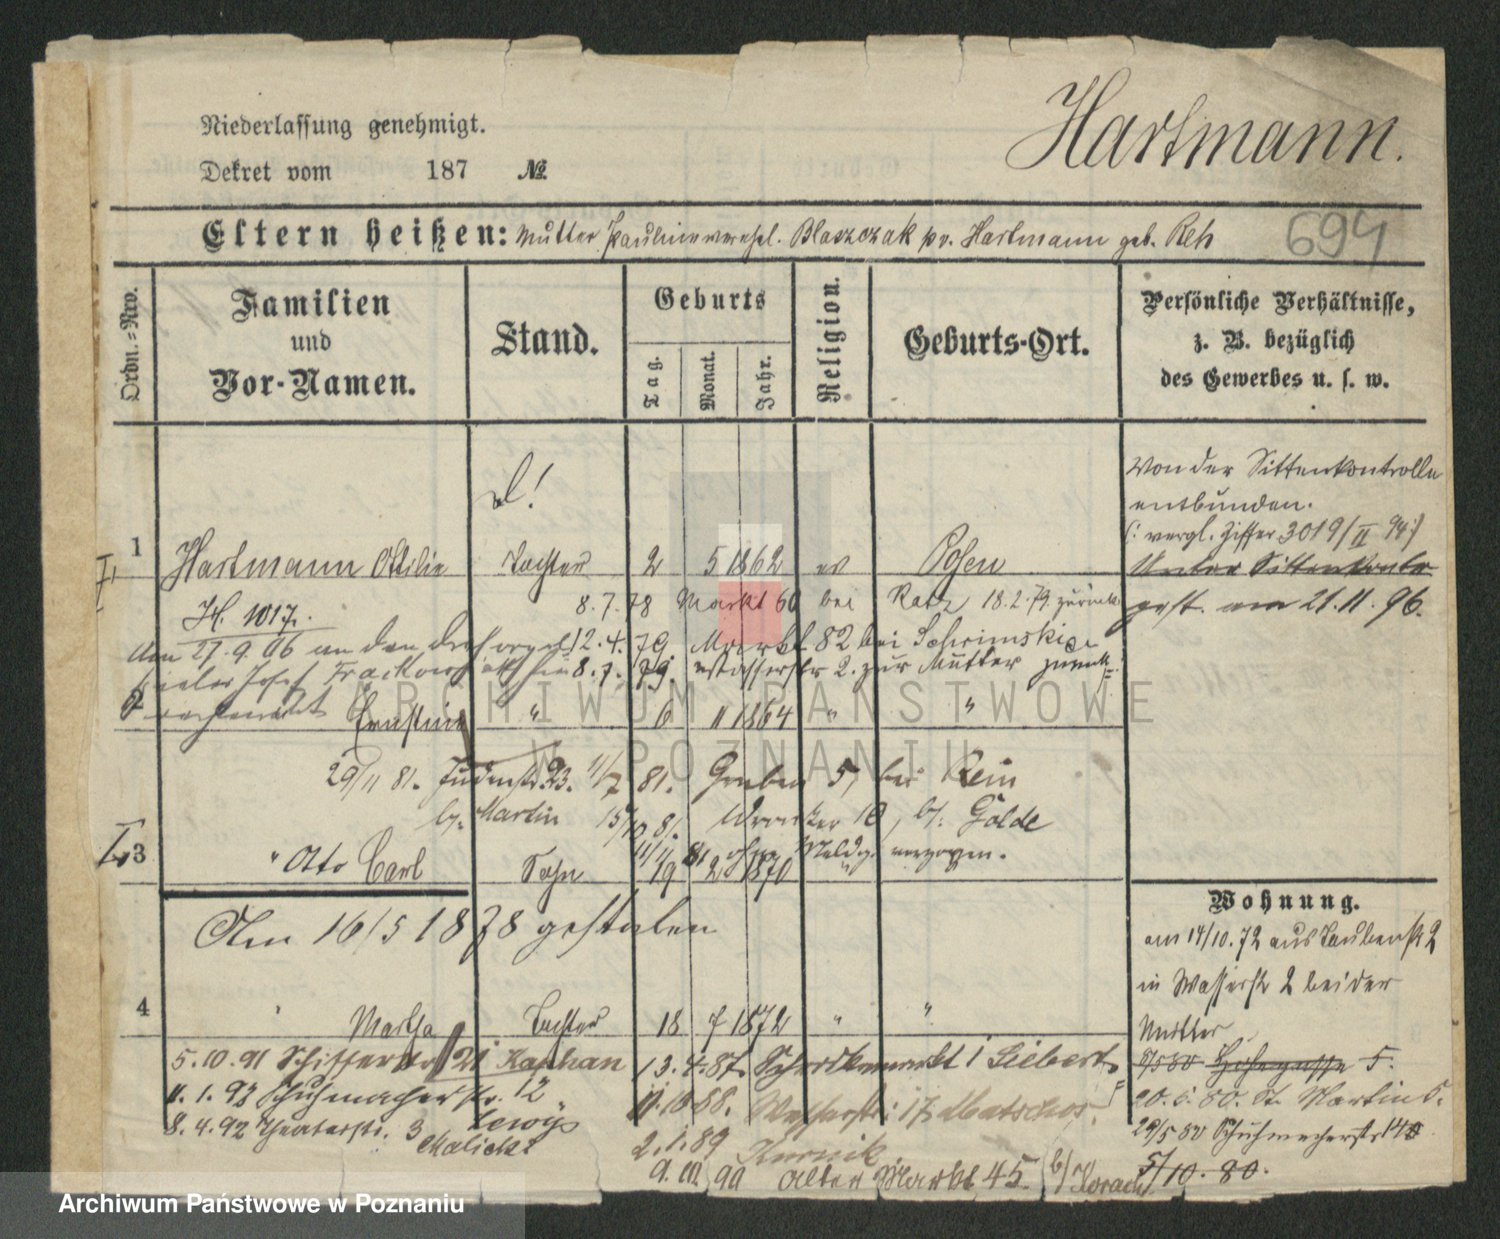 Niederlassung genehmigt.
Hartmann.
Dekret vom 187 №
Eltern heißen: Mutter Pauline verehel. Blaszczak pr. Hartmann geb. Reh
694
Ordn.-Nro.
Familien und Vor-Namen.
Stand.
Geburts
Tag.
Monat.
Jahr.
Religion.
Geburts-Ort.
Persönliche Verhältnisse, z. B. bezüglich des Gewerbes u. s. w.
Von der Sittenkontrolle
entbunden.
(: vergl. Ziffer 3019/II 94:)
Unter Sittenkontr
gest. am 21.11.96.
1 Hartmann Ottilie Tochter 2 5 1862 ev Posen
H. 1017.
8.7.78 Markt 60 bei Katz 18.2.79. zurück
Am 27.9.06 an den 12.4.79. Markt 82 bei Schrimski
Josef 8.7.79. Wasserstr 2. zur Mutter zurück
Ernstine " 6 11 1864 " "
29/11 81. Judenstr 23. 11/7 81. Graben 5, bei Rein
by. Martin 15/10 81. Wronker 10, b/. Golde
11/11 81 ohne Meldg. verzogen.
3 " Otto Carl Sohn 19 2 1870
Am 16/5 1878 gestorben
Wohnung.
am 14/10.72 aus Taubenstr 2
in Wasserstr 2 bei der
Mutter
4 " Martha Tochter 18 7 1872 " "
5.10.91 Schifferstr 21 Kaphan 13.4.87. 1 Liebert
11.1.92 Schuhmacherstr. 12 Lewy 11.10 88. Wasserstr: 17
8.4.92 Theaterstr. 3 Malicki 2.1.89 Kurnik
Alter Markt 45. b/
20.6.80. St. Martin 5.
29/5 80 Schuhmacherstr
5/10.80.
ARCHIWUM PAŃSTWOWE
W POZNANIU
Archiwum Państwowe w Poznaniu